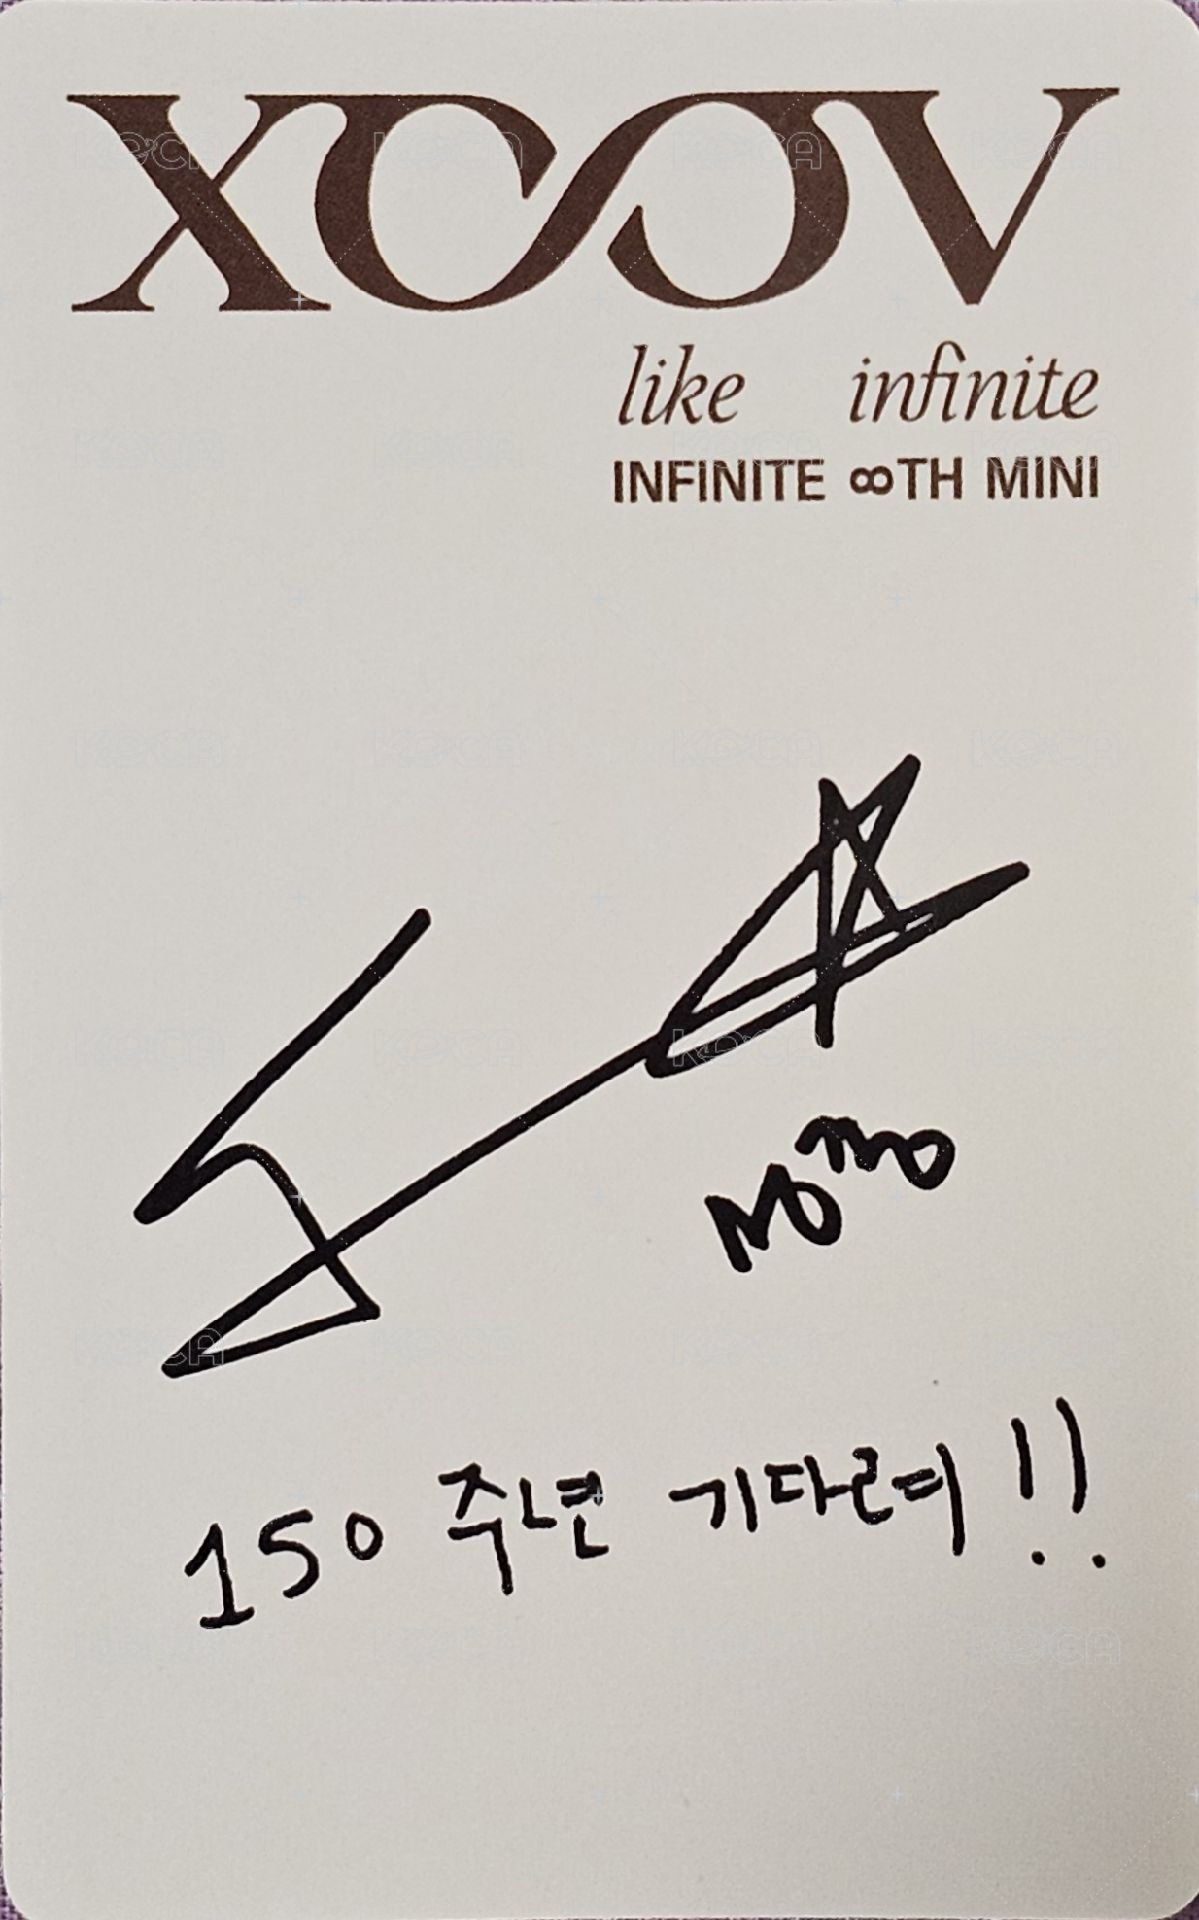 XOOV
like infinite
INFINITE ∞TH MINI
성종
150 주년 기다려!!
KOCA